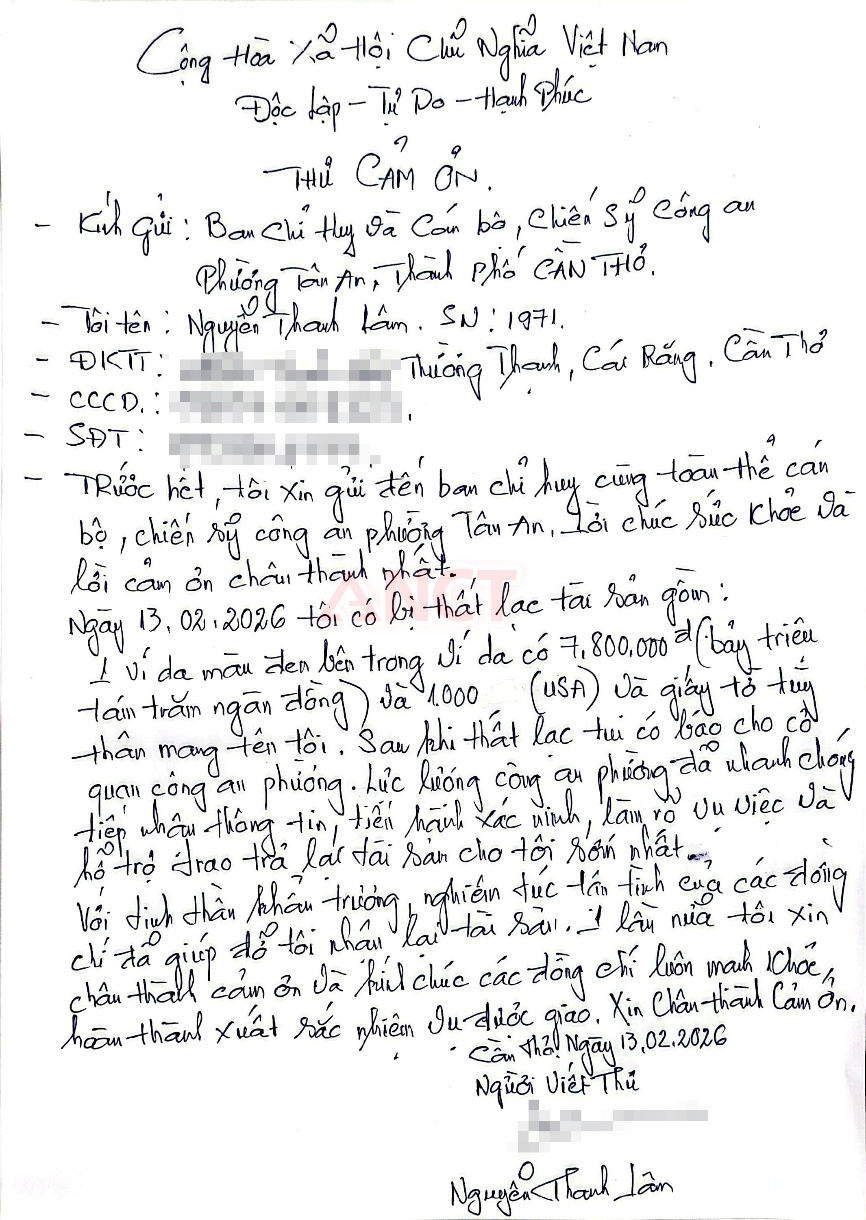 Cộng Hòa Xã Hội Chủ Nghĩa Việt Nam
Độc Lập - Tự Do - Hạnh Phúc
THƯ CẢM ƠN.
- Kính gửi: Ban Chỉ Huy và Cán bộ, Chiến Sỹ Công an
Phường Tân An, Thành phố CẦN THƠ.
- Tôi tên: Nguyễn Thanh Lâm. SN: 1971.
- ĐKTT: Thường Thạnh, Cái Răng, Cần Thơ
- CCCD.:
- SĐT:
- TRước hết, tôi xin gửi đến ban chỉ huy cùng toàn thể cán
bộ, chiến sỹ công an phường Tân An. Lời chúc sức khỏe và
lời cảm ơn chân thành nhất.
ANCT
Ngày 13.02.2026 tôi có bị thất lạc tài sản gồm:
1 ví da màu đen bên trong ví da có 7,800,000đ (bảy triệu
tám trăm ngàn đồng) và 1000 (USA) và giấy tờ tùy
thân mang tên tôi. Sau khi thất lạc tui có báo cho cơ
quan công an phường. Lực lượng công an phường đã nhanh chóng
tiếp nhận thông tin, tiến hành xác minh, làm rõ vụ việc và
hỗ trợ trao trả lại tài sản cho tôi sớm nhất.
Với tinh thần khẩn trương, nghiêm túc tận tình của các đồng
chí đã giúp đỡ tôi nhận lại tài sản. 1 lần nữa tôi xin
chân thành cảm ơn và kính chúc các đồng chí luôn mạnh khỏe,
hoàn thành xuất sắc nhiệm vụ được giao. Xin Chân thành Cảm Ơn.
Cần Thơ Ngày 13.02.2026
Người Viết Thư
Nguyễn Thanh Lâm